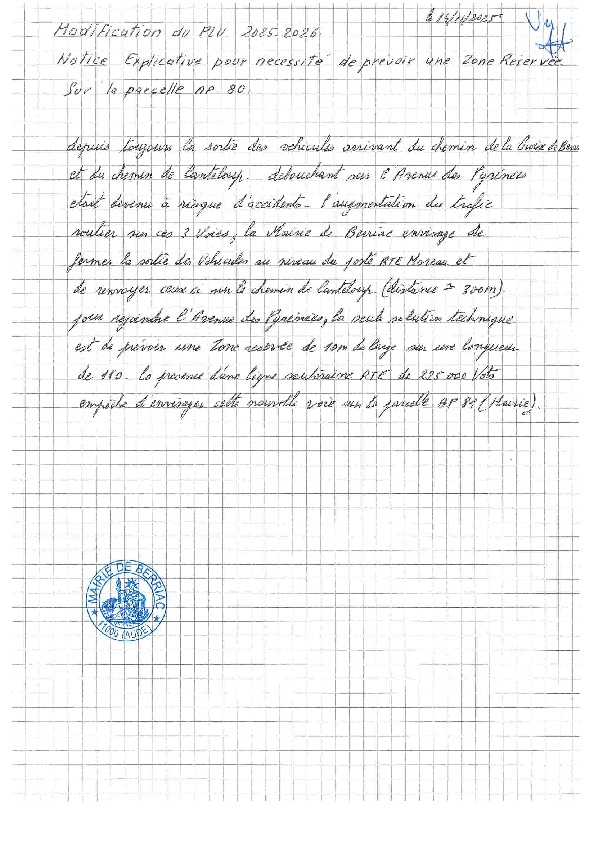 le 14/11/2025
Vu
Modification du PLU 2025-2026.
Notice Explicative pour necessité de prevoir une Zone Reservée
Sur la parcelle AP 80.
depuis toujours la sortie des vehicules arrivant du chemin de la Croix de
et du chemin de Canteloup. débouchant sur l'Avenue des Pyrénées
etait devenu à risque d'accidents - l'augmentation du trafic
routier sur ces 3 Voies, la Mairie de Berriac envisage de
fermer la sortie des Vehicules au niveau du poste RTE Moreau et
de renvoyer ceux ci sur le chemin de Canteloup (distance ≃ 300m).
pour rejoindre l'Avenue des Pyrénées, la seule solution technique
est de prévoir une Zone reservée de 10m de large sur une longueur
de 180. la presence d'une ligne souteraine RTE de 225 000 Volts
empêche d'envisager cette nouvelle voie sur la parcelle AP 81 (Mairie).
MAIRIE DE BERRIAC
11000 (AUDE)